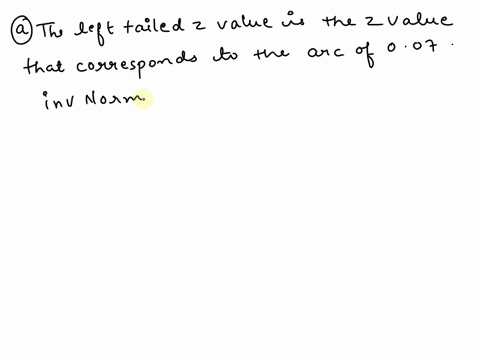 (a) The left tailed z value is the z value
that corresponds to the arc of 0.07.
inv Norm